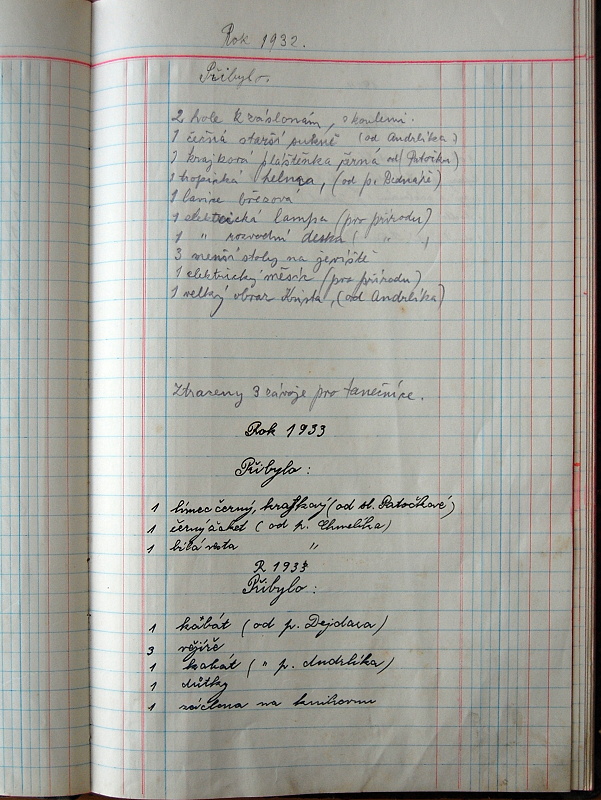 Rok 1932.
Přibylo.
2 hole k záslonám, s koulemi.
1 černá starší sukně (od Andrlíka)
1 krajková pláštěnka černá od Patočků
1 tropická helma, (od p. Bednáře)
1 lavice březová
1 elektrická lampa (pro přírodu)
1 " rozvodní deska ( " " )
3 menší stoly na jeviště
1 elektrický měsíc (pro přírodu)
1 velký obraz Krista, (od Andrlíka)
Ztraceny 3 závoje pro tanečnice.
Rok 1933
Přibylo:
1 límec černý, krajkový (od sl. Patočkové)
1 černý žaket (od p. Chmelíka)
1 bílá vesta "
R 193
Přibylo:
1 kabát (od p. Dejdara)
3 vějíře
1 kabát ( " p. Andrlíka)
1 důtky
1 záclona na knihovnu